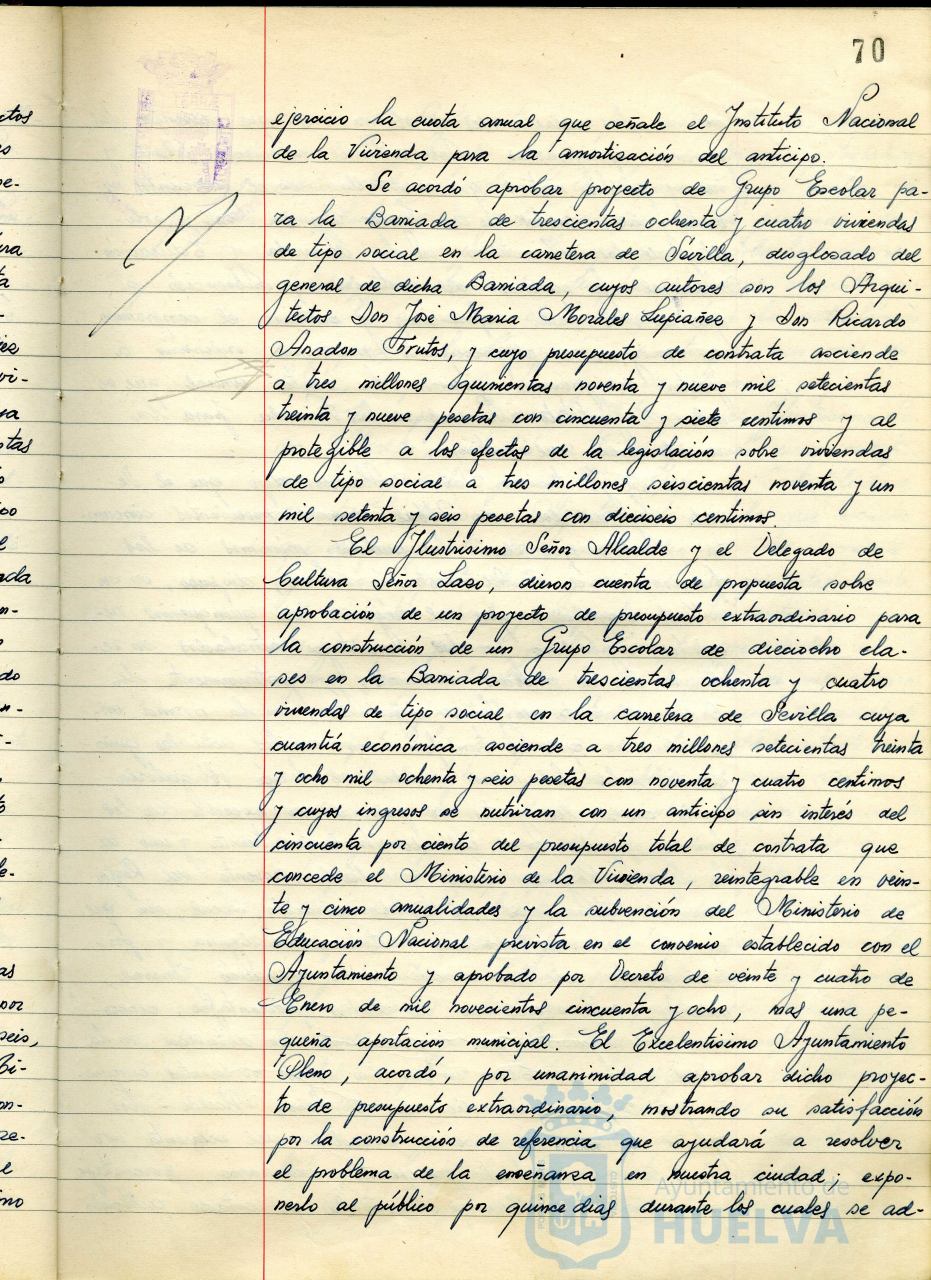 70
ejercicio la cuota anual que señale el Instituto Nacional
de la Vivienda para la amortización del anticipo.
Se acordó aprobar proyecto de Grupo Escolar pa-
ra la Barriada de trescientas ochenta y cuatro viviendas
de tipo social en la carretera de Sevilla, desglosado del
general de dicha Barriada, cuyos autores son los Arqui-
tectos Don José Maria Morales Lupiañez y Don Ricardo
Anadon Frutos, y cuyo presupuesto de contrata asciende
a tres millones quinientas noventa y nueve mil setecientas
treinta y nueve pesetas con cincuenta y siete centimos y al
protegible a los efectos de la legislación sobre viviendas
de tipo social a tres millones seiscientas noventa y un
mil setenta y seis pesetas con dieciseis centimos.
El Ilustrisimo Señor Alcalde y el Delegado de
Cultura Señor Laso, dieron cuenta de propuesta sobre
aprobación de un proyecto de presupuesto extraordinario para
la construcción de un Grupo Escolar de dieciocho cla-
ses en la Barriada de trescientas ochenta y cuatro
viviendas de tipo social en la carretera de Sevilla cuya
cuantía económica asciende a tres millones setecientas treinta
y ocho mil ochenta y seis pesetas con noventa y cuatro centimos
y cuyos ingresos se nutriran con un anticipo sin interés del
cincuenta por ciento del presupuesto total de contrata que
concede el Ministerio de la Vivienda, reintegrable en vein-
te y cinco anualidades y la subvención del Ministerio de
Educación Nacional prevista en el convenio establecido con el
Ayuntamiento y aprobado por Decreto de veinte y cuatro de
Enero de mil novecientos cincuenta y ocho, mas una pe-
queña aportación municipal. El Excelentisimo Ayuntamiento
Pleno, acordó, por unanimidad aprobar dicho proyec-
to de presupuesto extraordinario, mostrando su satisfacción
por la construcción de referencia que ayudará a resolver
el problema de la enseñanza en nuestra ciudad; expo-
nerlo al público por quince dias durante los cuales se ad-
Ayuntamiento de
HUELVA